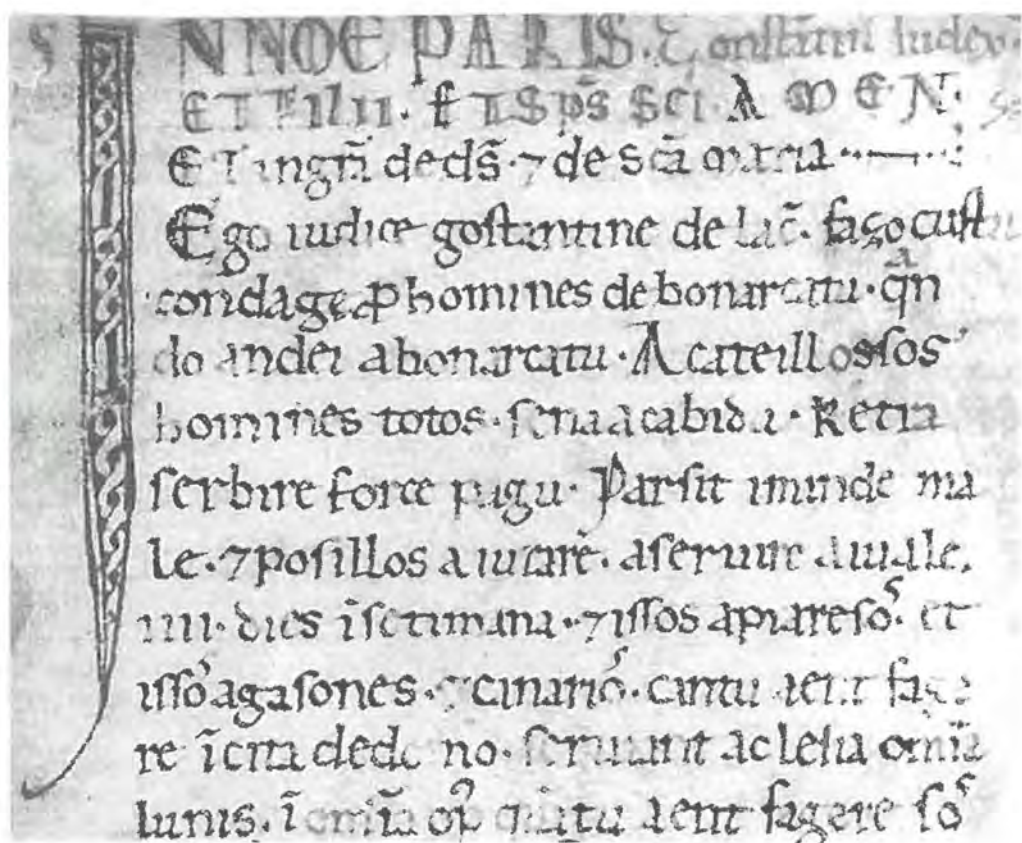 IN NOE PATRIS. Constantini iudex
ET FILII. ET SPS SCI. AMEN.
ET in grã de dš. ⁊ de scã maria
Ego iudice gostantine de lac̃. fago custu
condage ꝑ homines de bonarcatu. qan
do andei a bonarcatu. Acateillos sos
homines totos. sena acabidu. Ketia
serbire force pagu. Parsit iminde ma
le. ⁊ posillos a iurare. a seruire a iuale.
iiii. dies ĩ setimana. ⁊ issos apiareso˜s. et
isso˜s agasones. ⁊ cinario˜s. cantu aent fage
re ĩ cita dede no. seruiant a clesia omia
lunis. ĩ omia op̃ cantu aent fagere so˜s